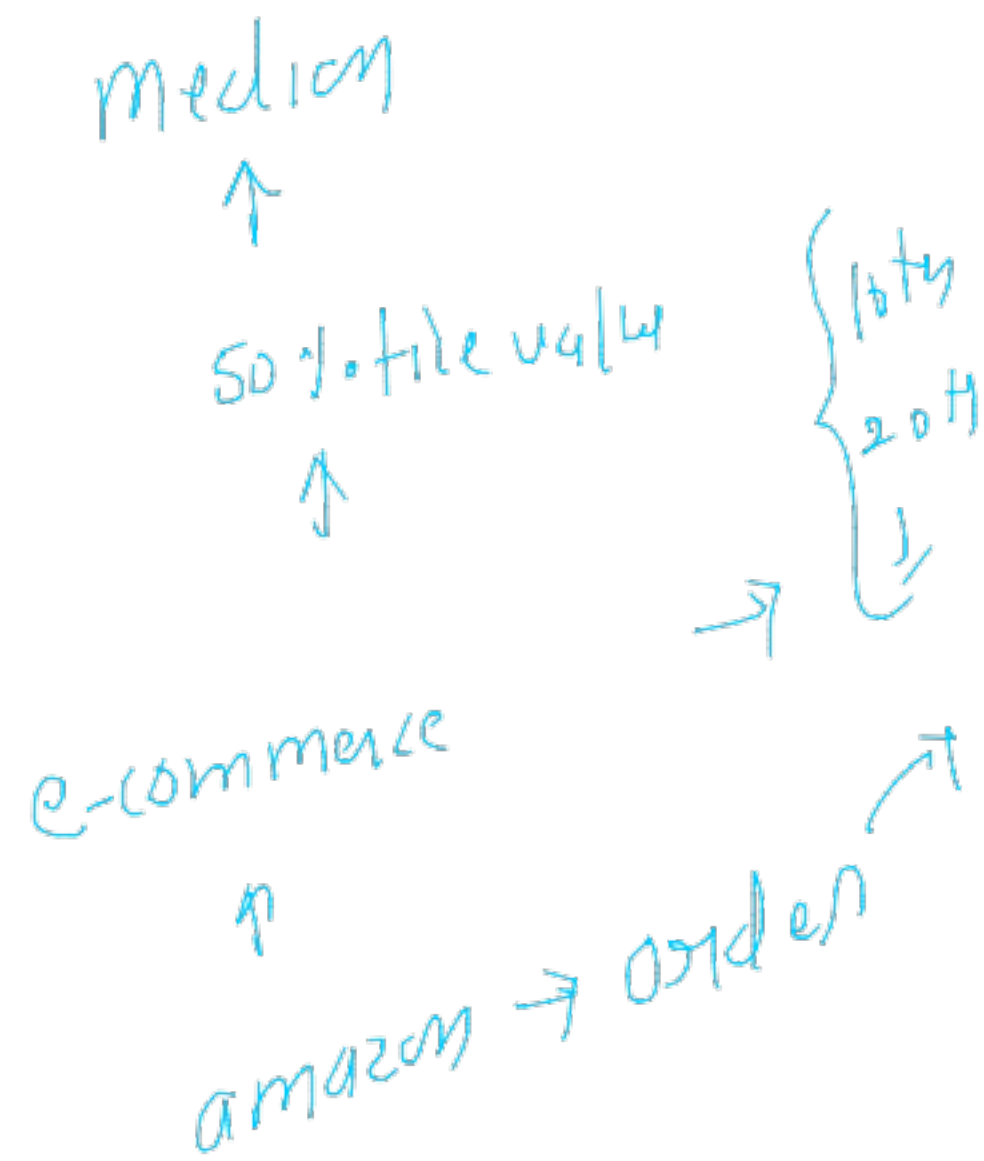 median
↑
50 %tile value
↑
10th
20th
→
e-commerce
↑
amazon → order